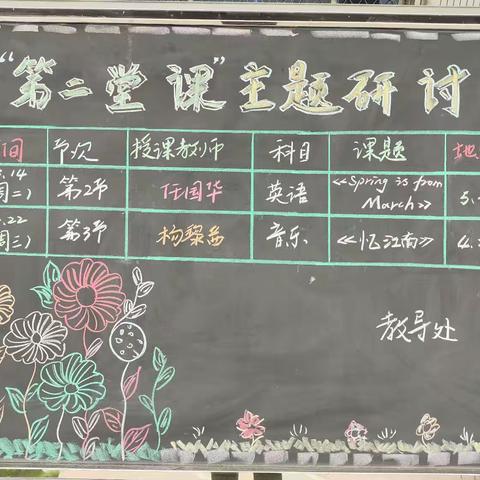 “第二堂课”主题研讨
间 节次 授课教师 科目 课题 地
.14 周二) 第2节 任国华 英语 《Spring is from March》 5.
.22 周三) 第3节 杨黎茜 音乐 《忆江南》 4.
教导处